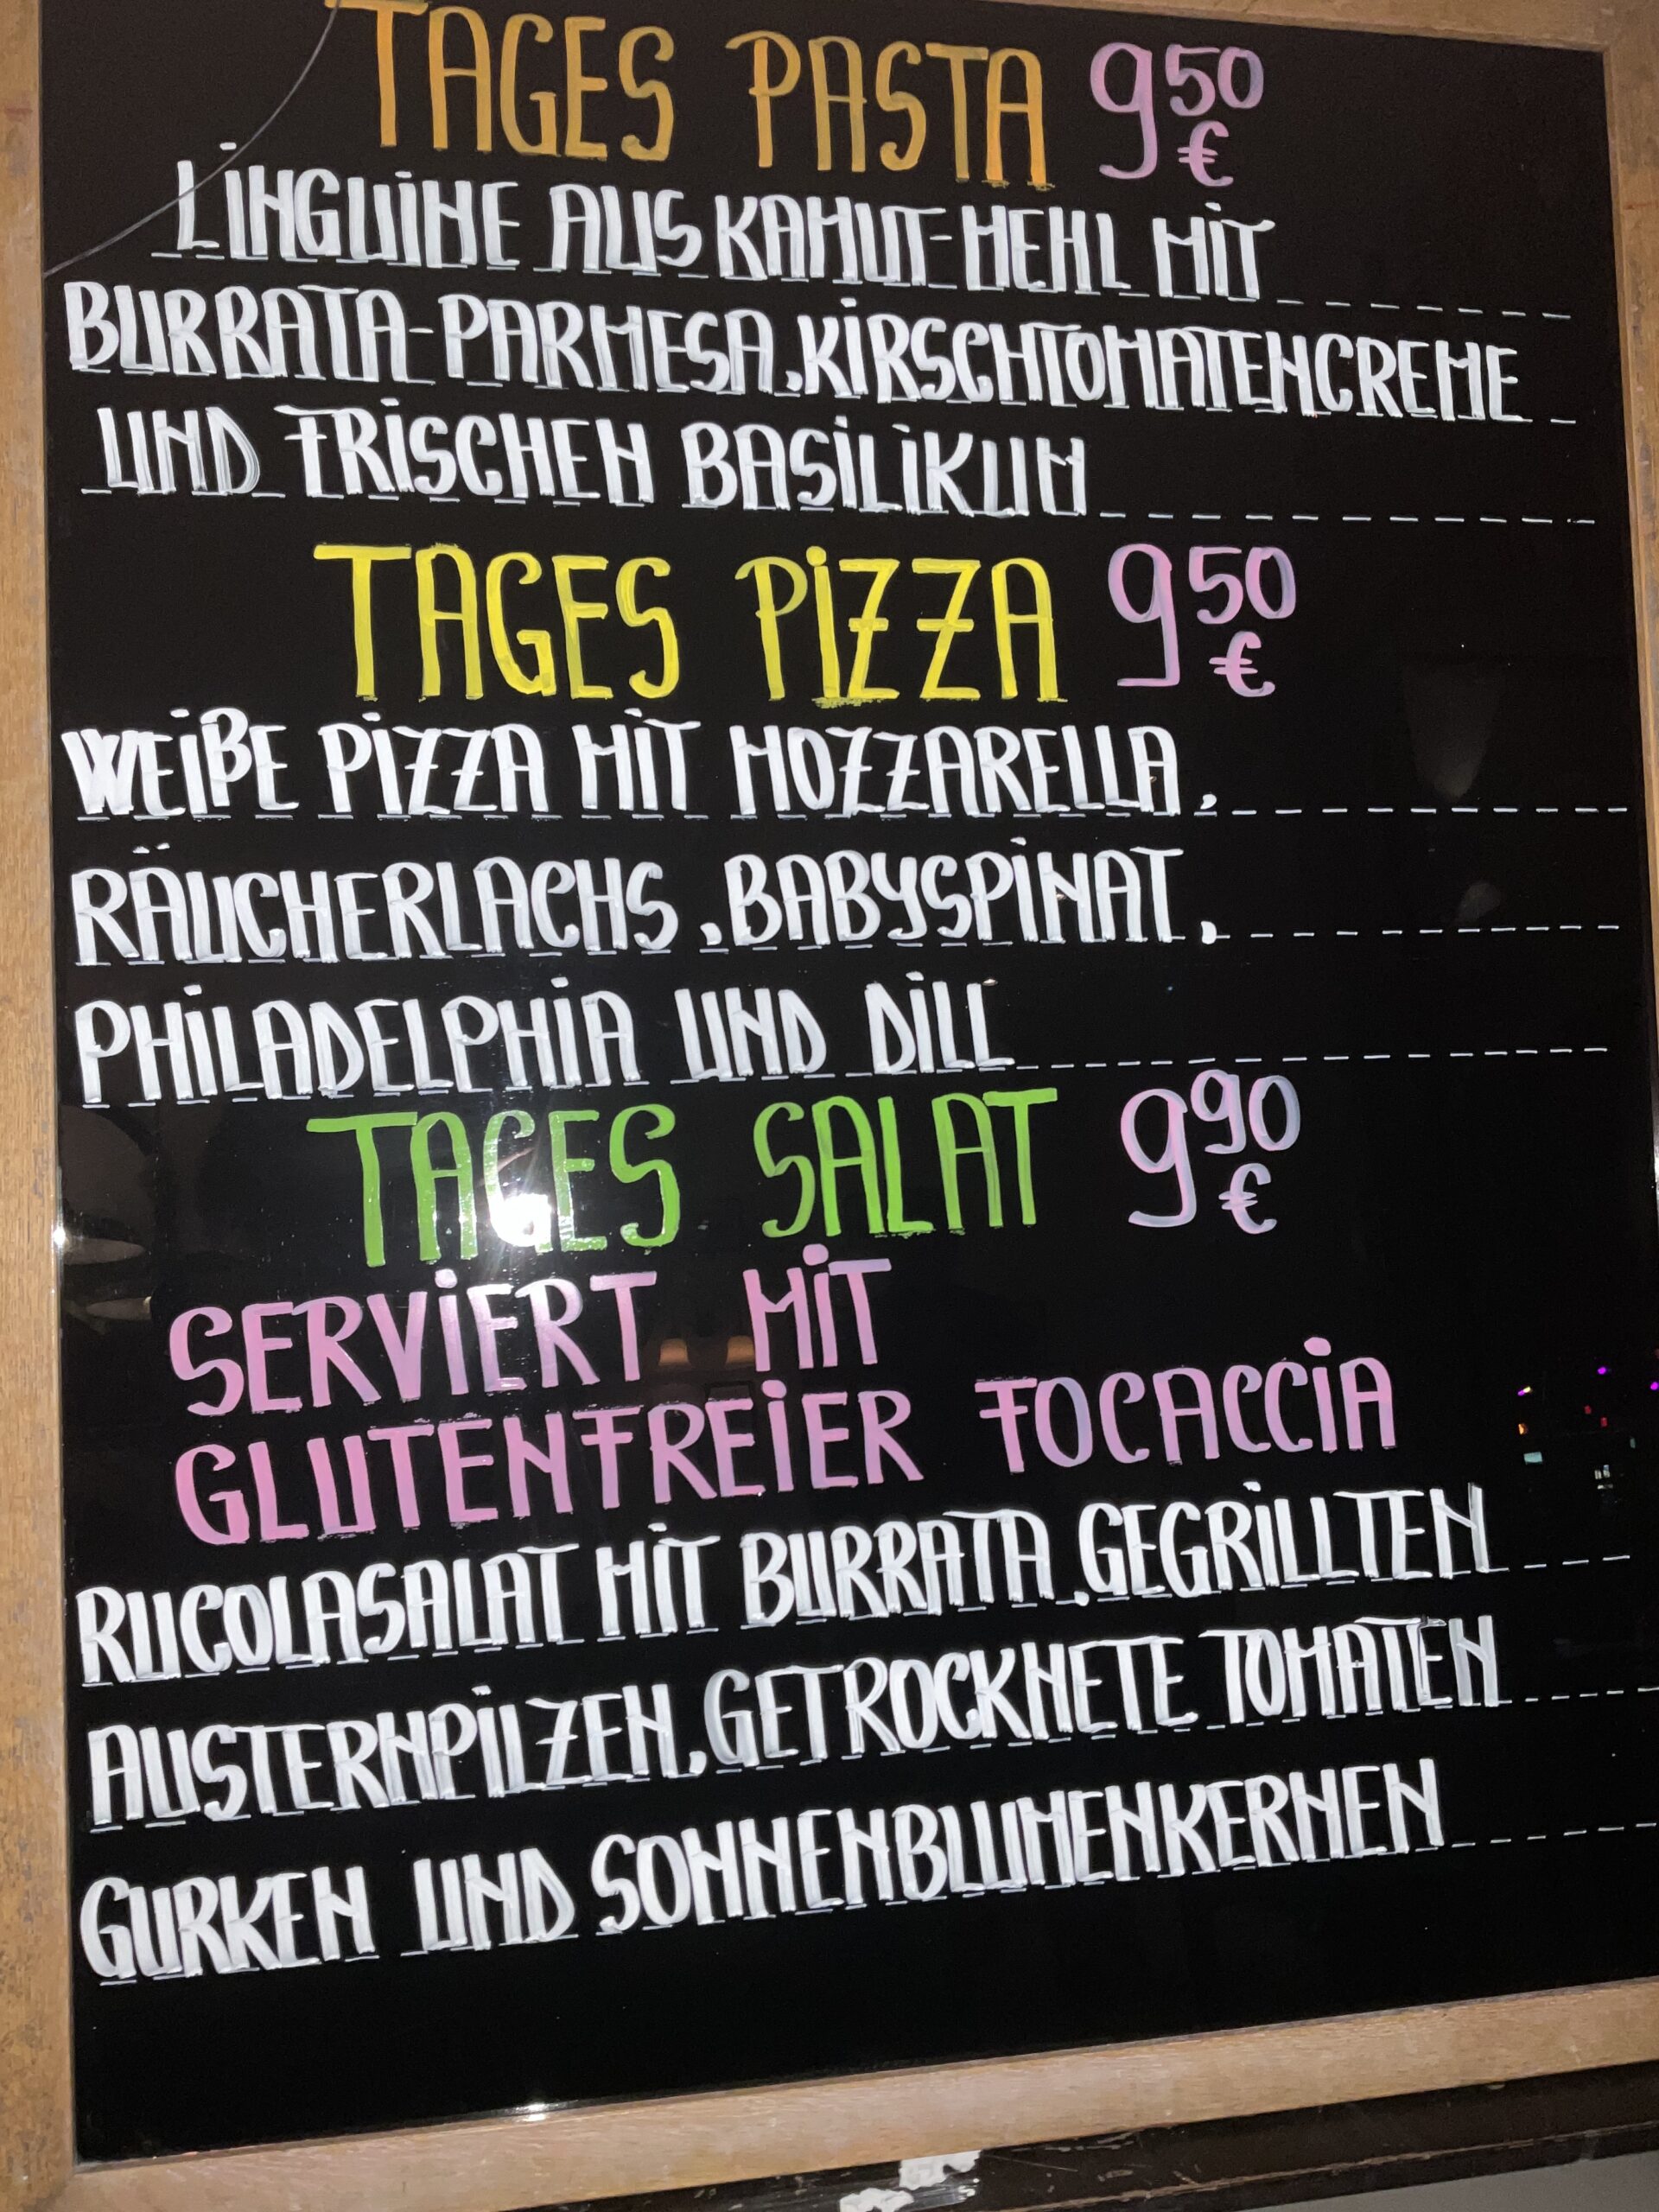 TAGES PASTA 9,50 €
LINGUINE AUS KAMUT-MEHL MIT
BURRATA-PARMESA, KIRSCHTOMATENCREME
UND FRISCHEN BASILIKUM
TAGES PIZZA 9,50 €
WEIßE PIZZA MIT MOZZARELLA,
RÄUCHERLACHS, BABYSPINAT,
PHILADELPHIA UND DILL
TAGES SALAT 9,90 €
SERVIERT MIT
GLUTENFREIER FOCACCIA
RUCOLASALAT MIT BURRATA, GEGRILLTEN
AUSTERNPILZEN, GETROCKNETE TOMATEN
GURKEN UND SONNENBLUMENKERNEN